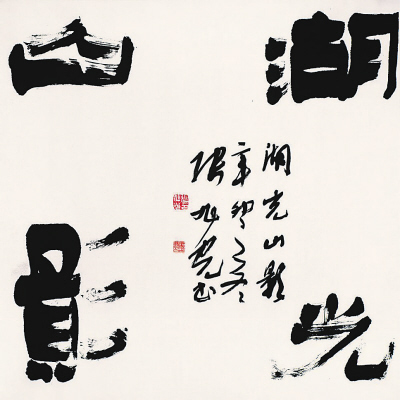 湖光
山影
湖光山影
辛卯之冬
张旭光书